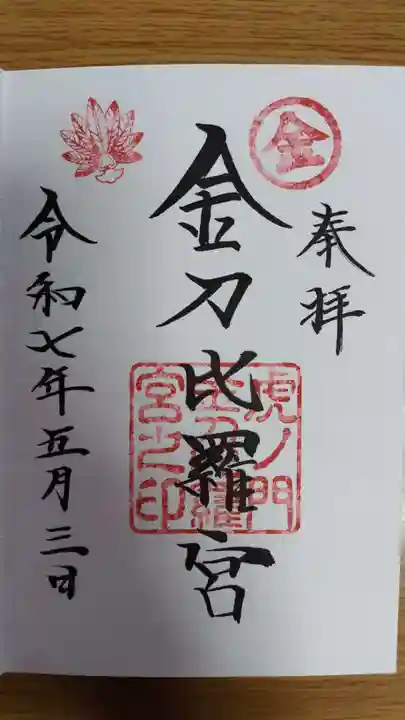 金
奉拝
金刀比羅宮
虎ノ門
金刀比羅
宮之印
令和七年五月三日